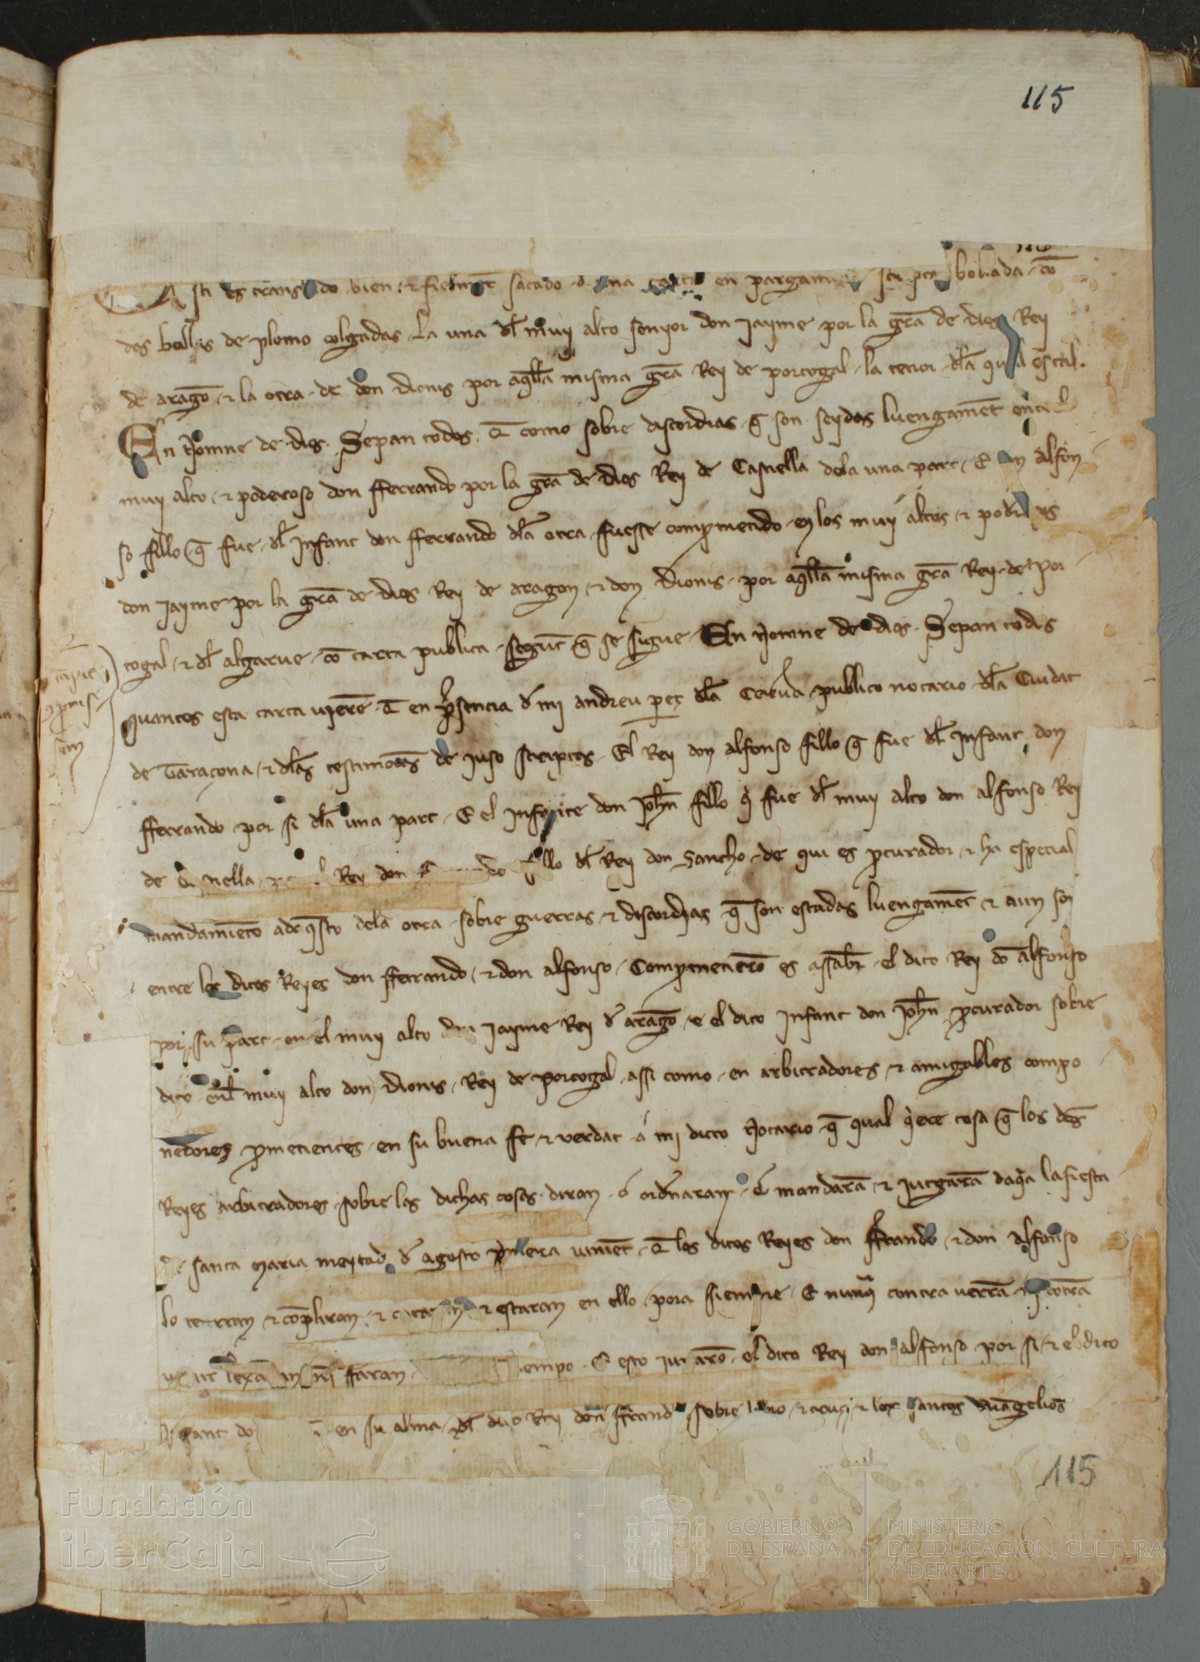 115
sti es translado bien & fielmēt sacado d una carta en pargamino scripta bollada cō
dos bollas de plomo colgadas la una dl muy alto senyor don Jayme por la grā de dios Rey
de aragō & la otra de don dionis por aqlla misma grā Rey de portogal la tenor dla qual es tal.
En Nomne de dios. Sepan todos q como sobre discordias q son seydas luengamēt entrel
muy alto & poderoso don fferrando por la grā de dios Rey de Castiella dela una part E don alfon
so fillo q fue dl Infant don fferrando dla otra fuesse comprmetido en los muy altos & poderosos
don Jayme por la grā de dios Rey de aragon & don Dionis por aqlla misma grā Rey de por
togal & dl algarue cō carta publica segūt q se sigue En Nomne de dios. Sepan todos
quantos esta carta vierē q en prsencia d mi andreu pereç dla Cerueda publico notario dla Ciudat
de Taraçona & dlas testimonias de iuso scriptos El Rey don alfonso fillo q fue dl Infant don
fferrando por si dla una part E el Infante don Johan fillo q fue dl muy alto don alfonso Rey
de Castiella Rey don fillo dl Rey don Sancho de qui es pcurador & ha especial
mandamiēto adaqsto dela otra sobre guerras & discordias q son estadas luengamēt & aun son
entre los ditos Reyes don fferrando & don alfonso Comprmetierō es assabr el dito Rey dō Alfonso
por su part en el muy alto don Jayme Rey d aragō e el dito Infant don Johan pcurador sobre
dito enl muy alto don Dionis Rey de portogal assi como en arbitradores & amigables compo
nedores prmetientes en su buena fe & verdat a mi dicto Notario q qual qere cosa q los dos
Reyes arbitradores sobre las dichas cosas diran o ordnaran o mandarā & iutgarā daqa la fiesta
de santa Maria meytad d agosto prmera vinēt q los ditos Reyes don fferando & don alfonso
lo terran & cōpliran & & estaran en ello pora siempre E nunq contra verrā contrā
faran tiempo. E esto iurarō el dito Rey don alfonso por si & el dito
Infant en su alma dl dito Rey don fferando sobre & los santos euāgelios
115
Fundación
iberCaja
GOBIERNO
DE ESPAÑA
MINISTERIO
DE EDUCACIÓN, CULTURA
Y DEPORTE